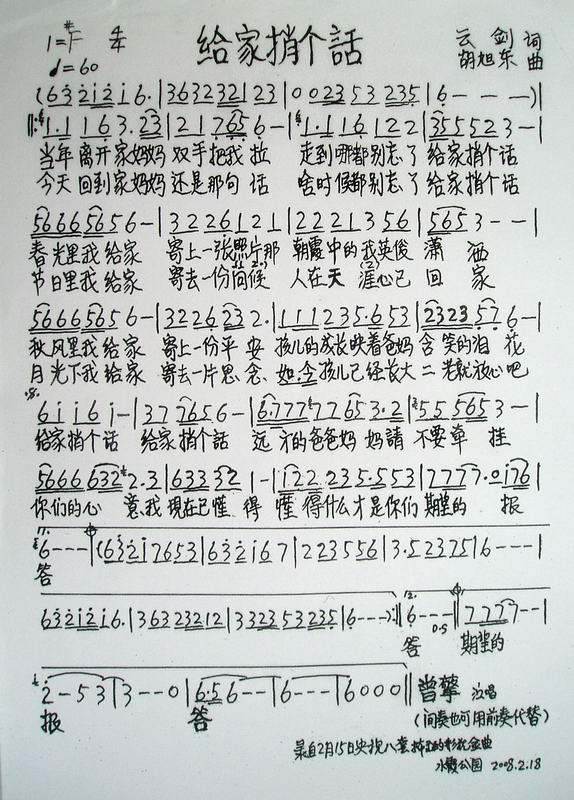 1=#F 4/4 给家捎个話 云剑 词
♩=60 胡旭东 曲
(6 3 2 1 2 1 6. | 3 6 3 2 3 2 1 2 3 | 0 0 2 3 5 3 2 3 5 | 6 - - - )|
‖: 1. 1 1 6 3. 2 3 | 2 1 7 6 5 6 - | 1. 1 1 6 1 2 2 | 3 5 5 5 2 3 - |
当年 离开家妈妈 双手把我 拉 走到哪都别忘了 给家捎个话
今天 回到家妈妈 还是那句 话 啥时候都别忘了 给家捎个话
5 6 6 6 5 6 5 6 - | 3 2 2 6 1 2 1 | 2 2 2 1 3 5 6 | 5 6 5 3 - - |
春光里我给家 寄上一张照片那 朝霞中的我英俊 潇 洒
节日里我给家 寄去一份问候 人在天 涯心已 回 家
5 6 6 6 5 6 5 6 - | 3 2 2 6 2 3 2. | 1 1 1 2 3 5. 6 5 3 | 2 3 2 3 5 7 6 - |
秋风里我给家 寄上一份平 安 孩儿的成长映着爸妈 含 笑的泪 花
月光下我给家 寄去一片思念 如今孩儿已经长大 二老就放心吧
6 1 1 6 1 - | 3 7 7 6 5 6 - | 6. 7 7 7 7 7 6 5 3. 2 | 5 5 5 6 5 3 - |
给家捎个话 给家捎个話 远 方的爸爸妈 妈請 不要牵 挂
5 6 6 6 6 3 2 2. 3 | 6 3 3 3 2 1 - | 1 2 2. 2 3 5. 5 5 3 | 7 7 7 7. 0 1 7 6 |
你们的心 意我 現在已懂 得 懂 得什么才是你们 期望的 报
6 - - - | (6 3 2 1 7 6 5 3 | 6 3 2 1 6 7 | 2 2 3 5 5 6 | 3. 5 2 3 7 5 | 6 - - - |
答
6 3 2 1 2 1 6. | 3 6 3 2 3 2 1 2 | 3 3 2 3 5 3 2 3 5 | 6 - - - ):‖ 6 - - - ‖ 7 7 7 7 - - |
答 期望的
2 - 5 3 | 3 - - 0 | 6. 5 6 - - | 6 - - - | 6 0 0 0 ‖ 曾擎 演唱
报 答 (间奏也可用前奏代替)
录自2月15日央视八套
公园 2008.2.18